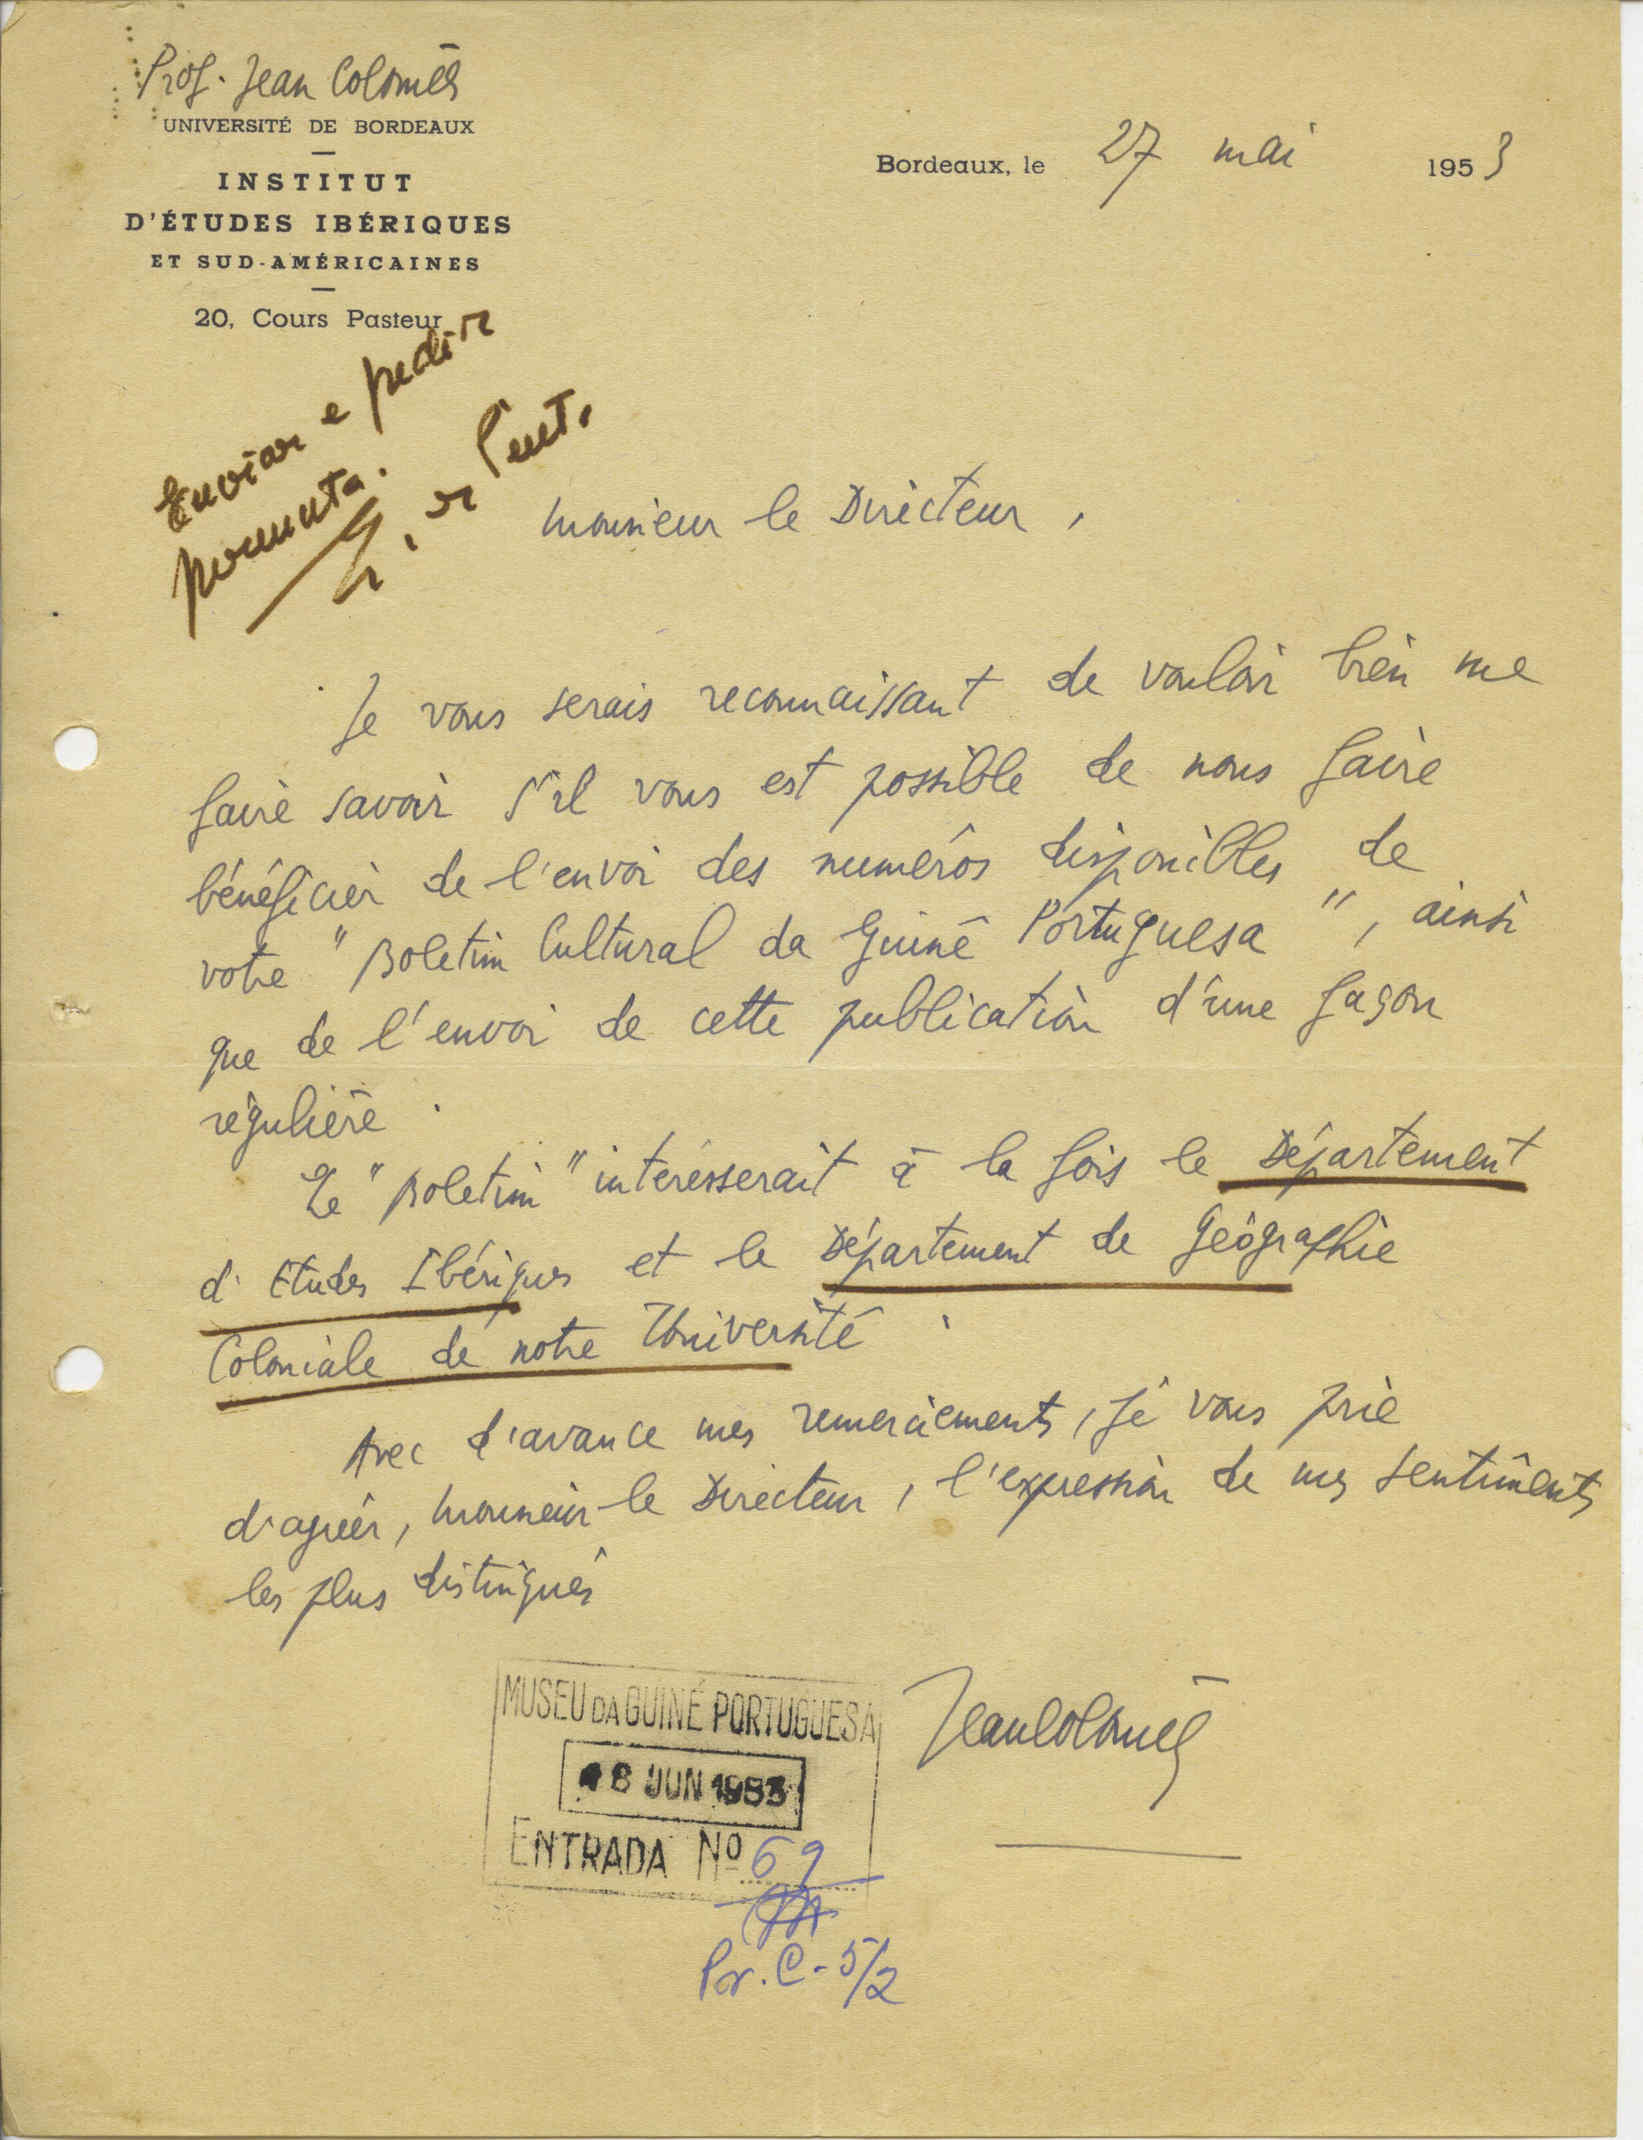 Prof. Jean Colomès
UNIVERSITÉ DE BORDEAUX
INSTITUT
D'ÉTUDES IBÉRIQUES
ET SUD-AMÉRICAINES
20, Cours Pasteur
Bordeaux, le 27 mai 1953
Enviar e pedir
permuta.
Monsieur le Directeur,
Je vous serais reconnaissant de vouloir bien me
faire savoir s'il vous est possible de nous faire
bénéficier de l'envoi des numéros disponibles de
votre "Boletim Cultural da Guiné Portuguesa", ainsi
que de l'envoi de cette publication d'une façon
régulière.
Le "Boletim" intéresserait à la fois le Département
d'Etudes Ibériques et le Département de Géographie
Coloniale de notre Université.
Avec d'avance mes remerciements, je vous prie
d'agréer, Monsieur le Directeur, l'expression de mes sentiments
les plus distingués
Jean Colomès
MUSEU DA GUINÉ PORTUGUESA
JUN 1953
ENTRADA Nº 69
Pr. C-5/2